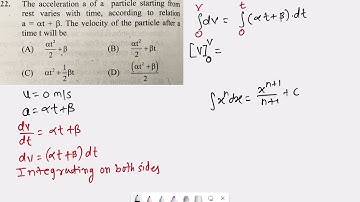 22. The acceleration a of a particle starting from
rest varies with time, according to relation
a = αt + β. The velocity of the particle after a
time t will be
(A) αt²/2 + β (B) αt²/2 + βt
(C) αt² + 1/2 βt (D) (αt² + β)/2
u = 0 m/s
a = αt+β
dv/dt = αt+β
dv = (αt+β) dt
Integrating on both sides
∫₀ᵛ dv = ∫₀ᵗ (αt+β).dt
[v]₀ᵛ =
∫xⁿdx = xⁿ⁺¹/n+1 + C